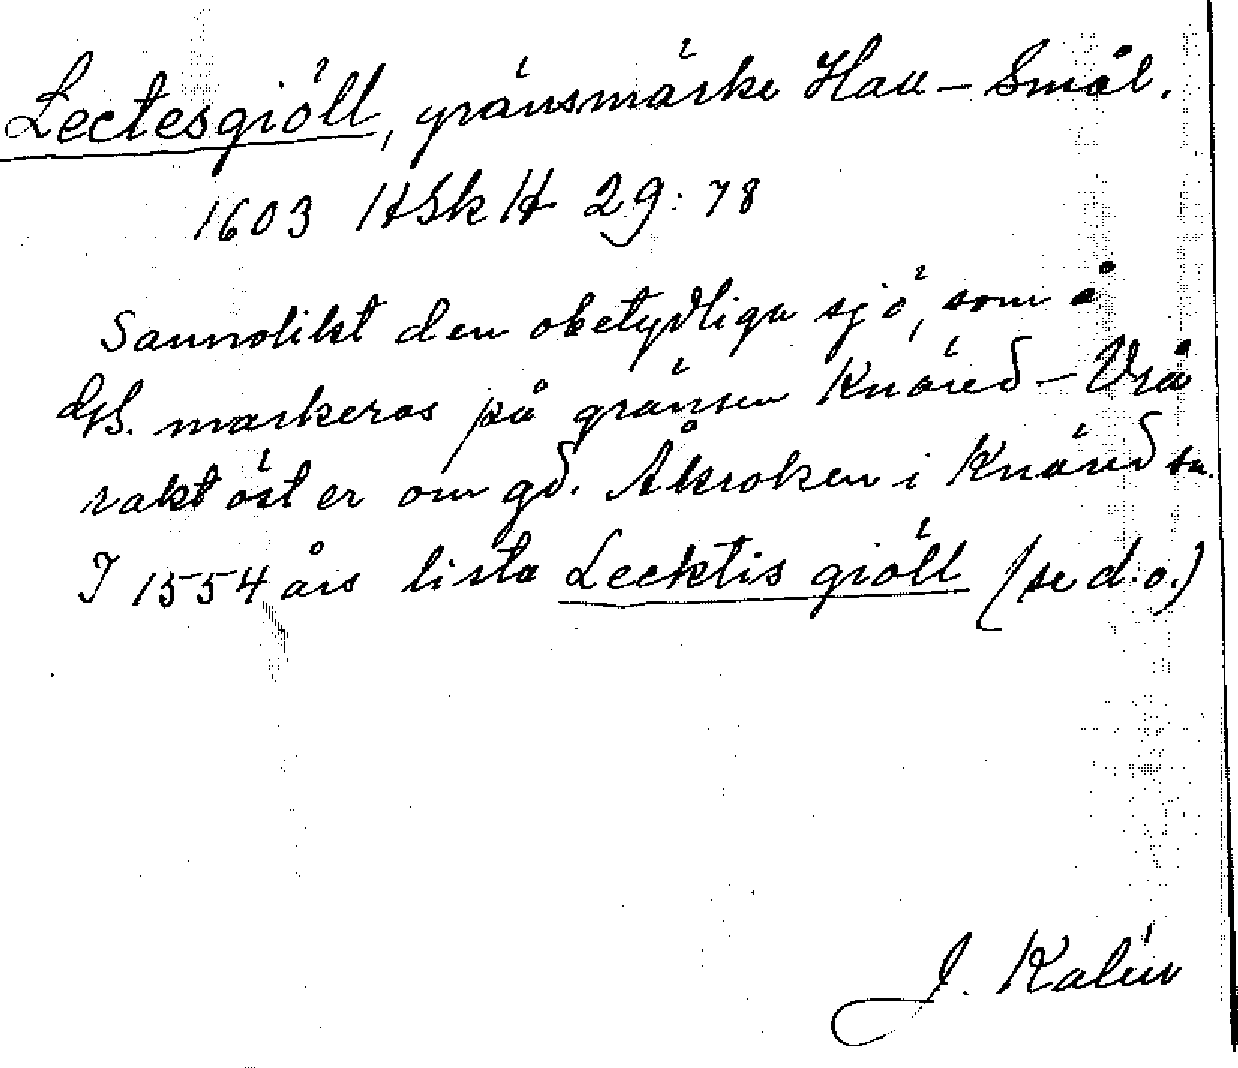 Lectesgiöll, gränsmärke Hall – Smål.
1603 HSkH 29:78
Sannolikt den obetydliga sjö, som å
GS. markeras på gränsen Knäred – Vrå
rakt öster om gd. Åkroken i Knäred sn.
I 1554 års lista Lecktis giöll (se d.o.)
J. Kalén